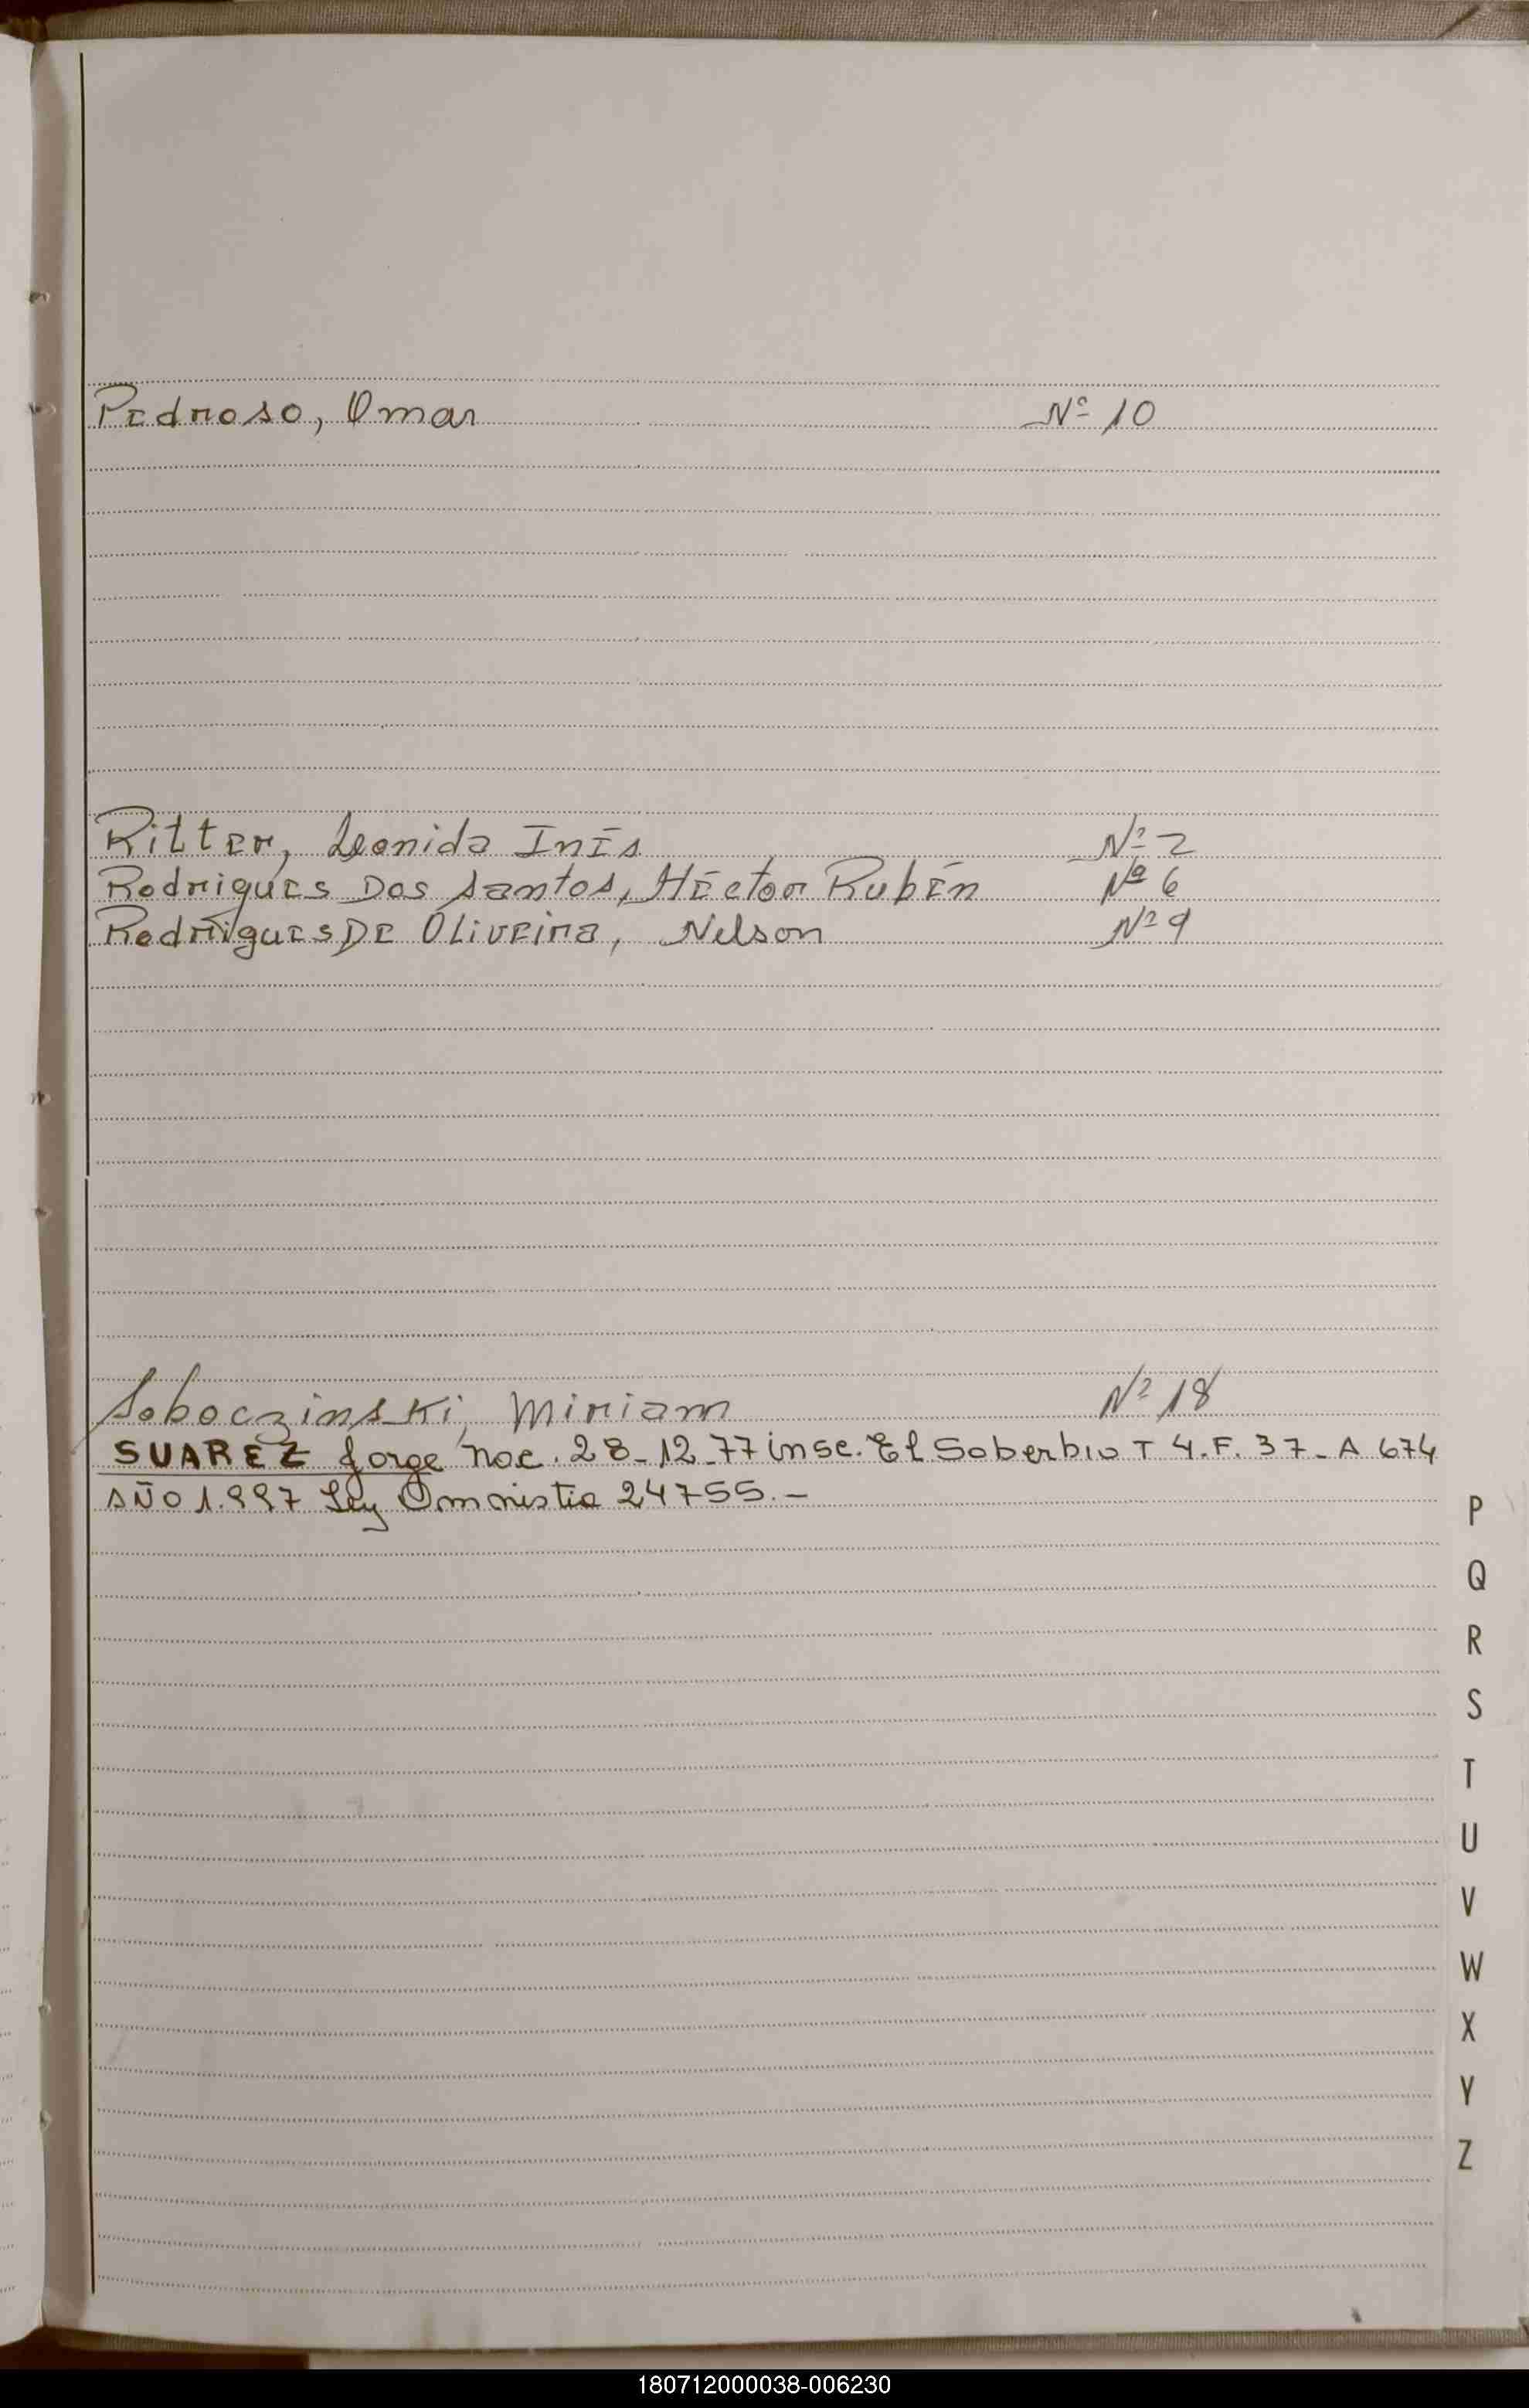 Pedroso, Omar Nº 10
Ritter, Leonida Inés Nº 2
Rodrigues Dos Santos, Héctor Rubén Nº 6
Rodrigues De Oliveira, Nelson Nº 9
Soboczinski, Miriam Nº 18
SUAREZ Jorge Nac. 28-12-77 insc. El Soberbio T 4. F. 37- A 674
AÑO 1.997 Ley Omnistia 24755.-
P
Q
R
S
T
U
V
W
X
Y
Z
180712000038-006230